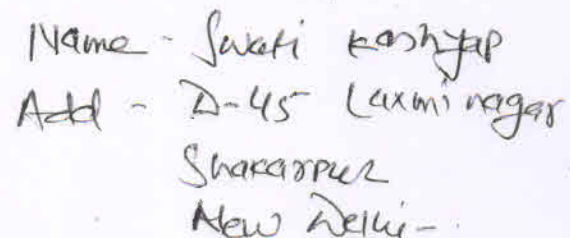 Name - Swati Kashyap
Add - D-45 Laxmi nagar
Shakarpur
New Delhi -